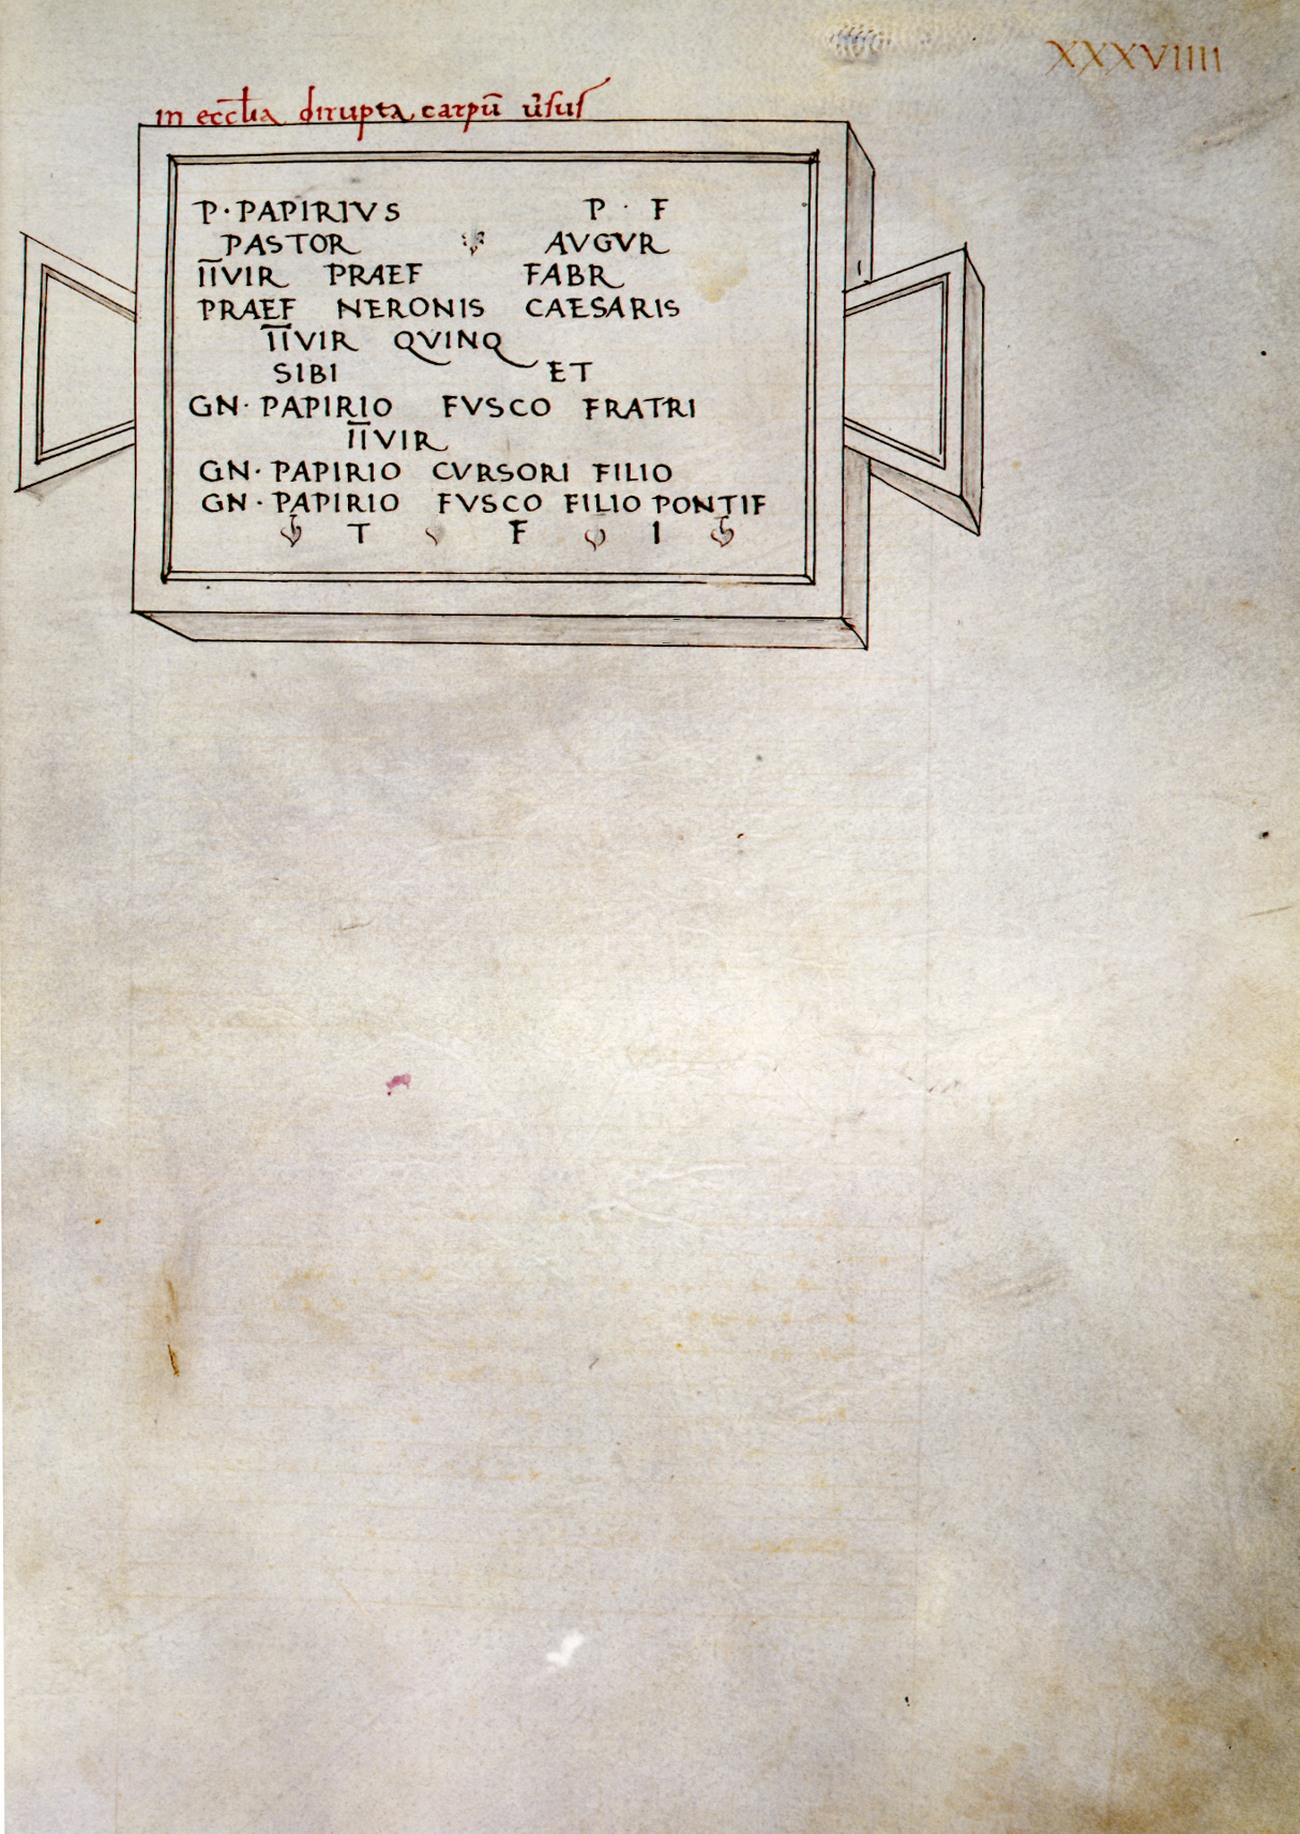 XXXVIIII
in eccl̄ia dirupta carpū ūsus
P · PAPIRIVS P · F
PASTOR AVGVR
I̅I̅VIR PRAEF FABR
PRAEF NERONIS CAESARIS
I̅I̅VIR QVINQ
SIBI ET
GN · PAPIRIO FVSCO FRATRI
I̅I̅VIR
GN · PAPIRIO CVRSORI FILIO
GN · PAPIRIO FVSCO FILIO PONTIF
❦ T ❦ F ❦ I ❦